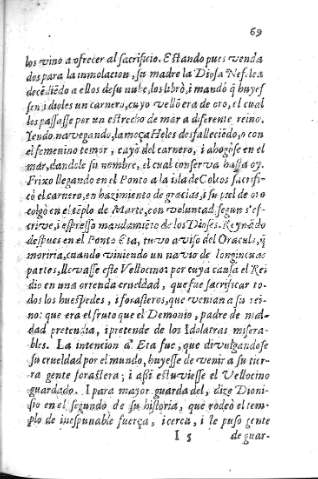 69
los vino a ofrecer al sacrificio. Estando pues venda
dos para la inmolacion, su madre la Diosa Nefelea
decẽdiẽdo a ellos desu nube, los librò, i mandò q̃ huyes
sen: idioles un carnero, cuyo vellõ era de oro, el cual
los passasse por un estrecho de mar a diferente reino.
Iendo navegando, la moça Heles desfalleciẽdo, o con
el femenino temor, cayò del carnero, i ahogòse en el
mar, dandole su nombre, el cual conserva hasta oy.
Frixo llegando en el Ponto a la isla de Colcos sacrifi-
cò el carnero, en hazimiento de gracias, i su piel de oro
colgò en el tẽplo de Marte, con voluntad, segun s'es-
crive, i espresso mandamiẽto de los Dioses. Reynãdo
despues en el Ponto Eta, tuvo aviso del Oraculo, q̃
moriria, cuando viniendo un navio de longincuas
partes, llevasse este Vellocino: por cuya causa el Rei
dio en una orrenda crueldad, que fue sacrificar to-
dos los huespedes, i forasteros, que venian a su rei-
no: que era el fruto que el Demonio, padre de mal-
dad pretendia, i pretende de los Idolatras misera-
bles. La intencion d' Eta fue, que divulgandose
su crueldad por el mundo, huyesse de venir a su tier-
ra gente forastera; i assi estuviesse el Vellocino
guardado. I para mayor guarda del, dize Dioni-
sio en el segundo de su historia, que rodeò el tem-
plo de inespunable fuerça, i cerca, i le puso gente
I 5 de guar-